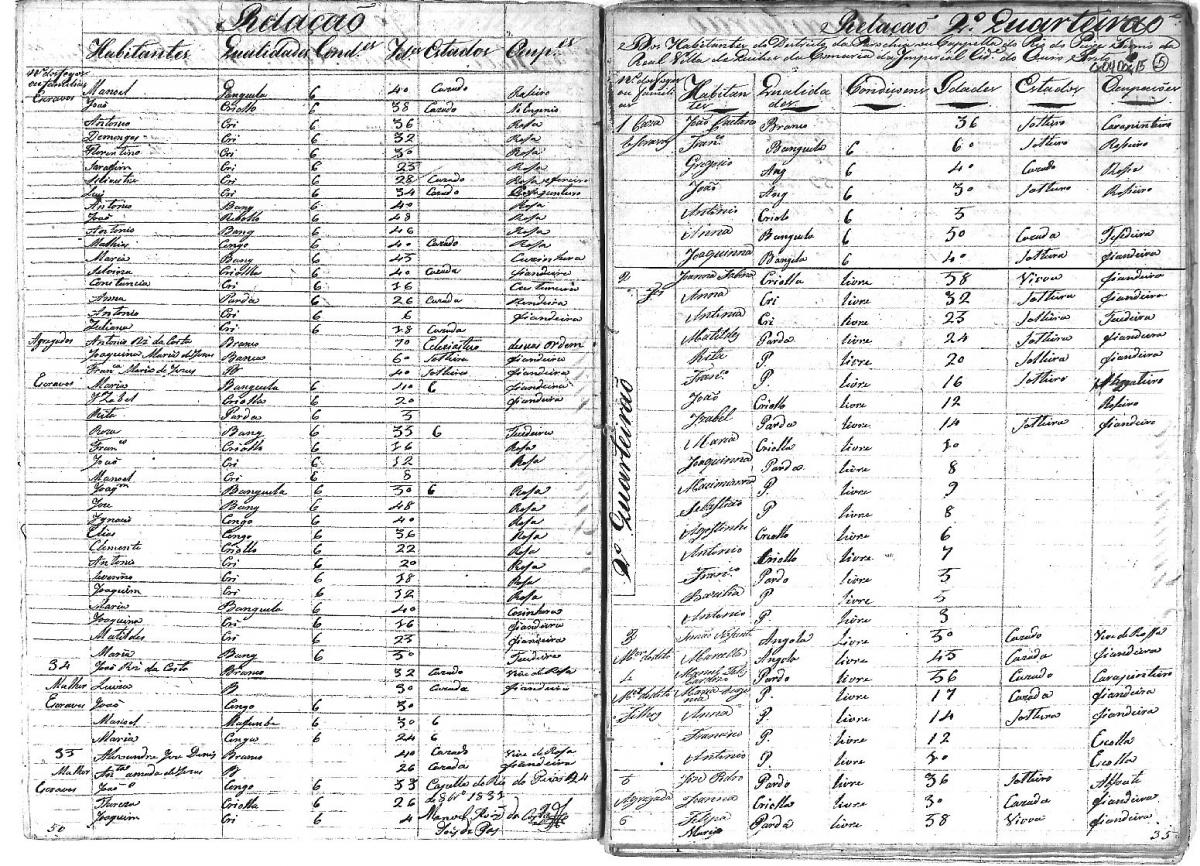 Relação
Habitantes Qualidades Cond.es Id.es Estados Occup.es
Escravos Manoel Banguela 6 40 Cazado Roseiro
João Criollo 6 38 Cazado
Antonio Cri 6 36 Rosa
Domingos Cri 6 32 Rosa
Florentino Cri 6 30 Rosa
Serafim Cri 6 23 Rosa
Silvestre Cri 6 28 Cazado Rosa
Luis Cri 6 34 Cazado
Antonio Bang 6 40 Rosa
João Rebollo 6 48 Rosa
Antonio Bang 6 46 Rosa
Mathias Congo 6 40 Cazado Rosa
Maria Bang 6 45
Silvina Criolla 6 40 Cazada fiandeira
Constancia Cri 6 16 Custureira
Anna Parda 6 26 Cazada Rendeira
Antonio Cri 6 6
Juliana Cri 6 18 Cazada
Agregados Antonio Roiz da Costa Branco 70 desces ordem
Joaquina Maria de Jesus Branca 60 Solteira fiandeira
Fran.ca Maria de Jesus B 40 Solteira fiandeira
Escravos Maria Banguela 6 40 6 fiandeira
Izabel Criolla 6 20 fiandeira
Rita Parda 3
Roza Bang 6 33 6 Tecideira
Fran.co Criollo 6 16 Rosa
João Cri 6 12 Rosa
Manoel Cri 6 8
Joaq.m Banguela 6 50 6 Rosa
Jose Bang 6 48 Rosa
Ignacio Congo 6 40 Rosa
Elias Congo 6 36 Rosa
Clemente Criollo 6 22 Rosa
Antonio Cri 6 20 Rosa
Severino Cri 6 18 Rosa
Joaquim Cri 6 12 Rosa
Maria Banguela 6 40 Cosinheira
Joaquina Cri 6 16 fiandeira
Matildes Cri 6 23 fiandeira
Maria Bang 6 50 Tecideira
34 João Roiz da Costa Branco 32 Cazado Vive de Rosa
Mulher Luiza B 30 Cazada fiandeira
Escravos João Congo 6 30
Manoel Mofumbe 6 30 6
Maria Congo 6 24 6
35 Alexandre Jose Diniz Branco 40 Cazado Vive de Rosa
Mulher B 26 Cazada fiandeira
Escravos João Congo 6 53 Capella do Rio do Peixe 24
Thereza Criolla 6 26 de 1831
Joaquim Cri 6 4 Manoel Roiz da Costa
Juis de Pas
50
Relação 2º Quarteirao
Dos Habitantes do Destricto da Capella do Rio do Peixe
Real Villa de da Comarca da Imperial Cid. do Ouro Preto
5
Habitantes Qualidades Condiçoens Idades Estados Occupacões
1 Caza João Caetano Branco 36 Solteiro Carapinteiro
Escravos Fran.co Banguela 6 60 Solteiro Roseiro
Gregorio Ang 6 40 Cazado Rosa
João Ang 6 30 Solteiro Roseiro
Antonio Criolo 6 5
Anna Banguela 6 50 Cazada Tesedeira
Joaquinna Banguela 6 40 Solteira fiandeira
2 Joanna Criolla livre 58 Viuva fiandeira
Anna Cri livre 32 Solteira fiandeira
Antonia Cri livre 23 Solteira Tecideira
Matildes Parda livre 24 Solteira fiandeira
Rita P. livre 20 Solteira fiandeira
Fran.co P livre 16 Solteiro
João Criollo livre 12 Roseiro
Izabel Parda livre 14 Solteira fiandeira
Maria Criolla livre 10
Joaquinna Parda livre 8
Maximianna P. livre 9
Sebastião P. livre 8
Agostinho Criollo livre 6
Antonio Criollo livre 7
Fran.co Pardo livre 5
Bazilia P. livre 5
Antonio P. livre 3
2º Quarteirao
3 Angola livre 50 Cazado Vive de Rossa
Marcella Angola livre 45 Cazada fiandeira
4 Manoel Pardo livre 56 Cazado Carapinteiro
Maria P. livre 17 Cazada fiandeira
Filhos Anna P. livre 14 Solteira fiandeira
Francisco P. livre 12 Escolla
Antonio P. livre 10 Escolla
5 Jose Pedro Pardo livre 36 Solteiro Alfaiate
Agregada Joanna Criolla livre 30 Cazada fiandeira
6 Felipa Maria Parda livre 58 Viuva fiandeira
35